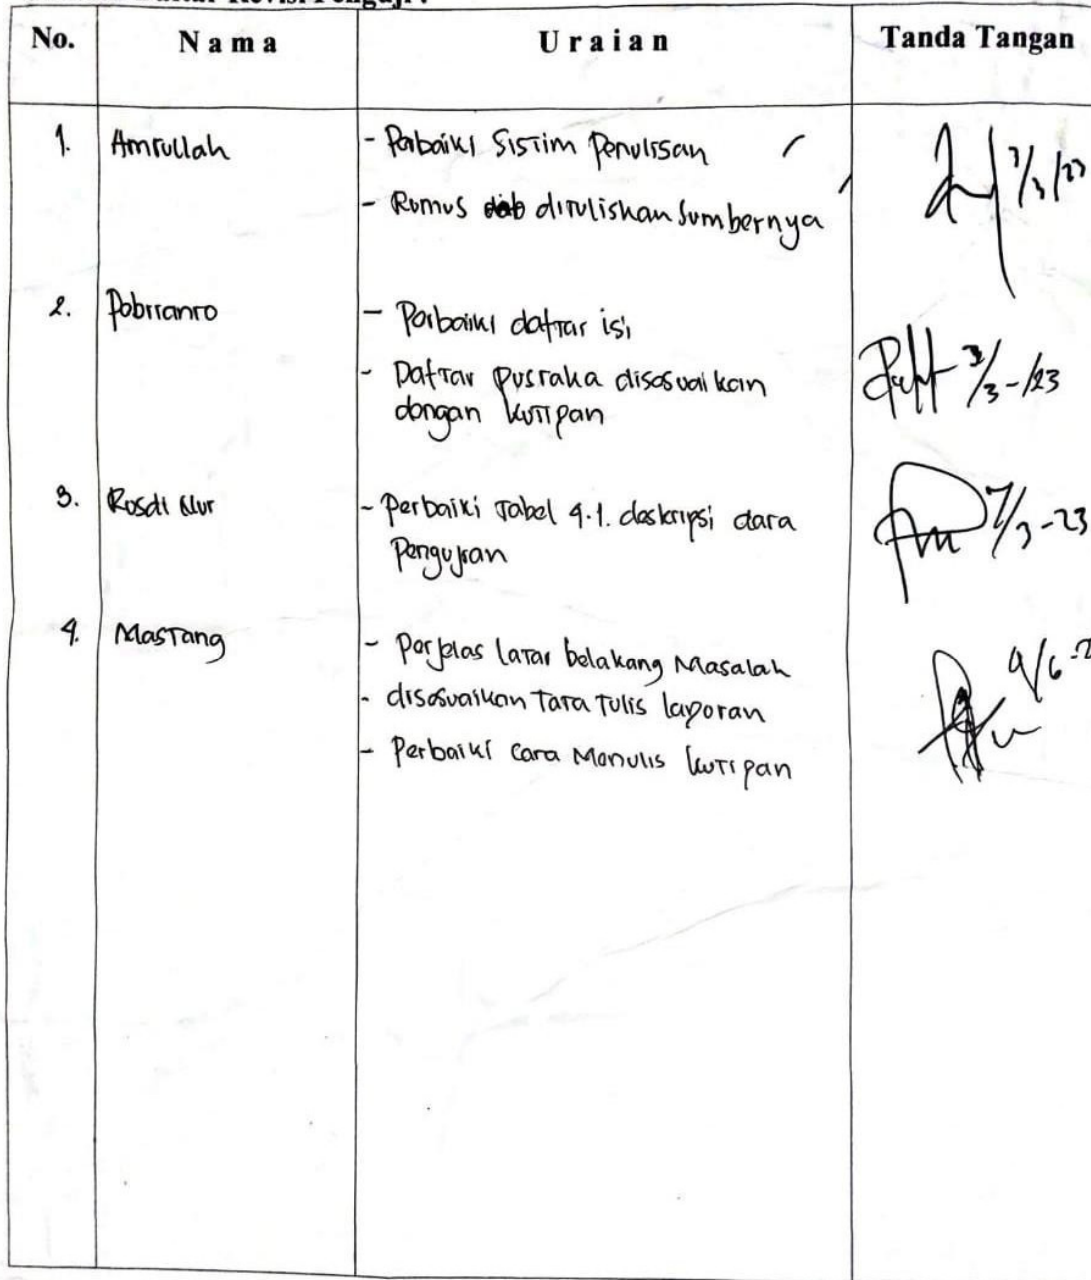 Daftar Revisi Penguji :
No. Nama Uraian Tanda Tangan
1. Amrullah - Perbaiki Sistim Penulisan
- Rumus dituliskan Sumbernya
7/3/23
2. Pebrianto - Perbaiki daftar isi
- Daftar Pustaka disesuaikan
dengan kutipan
3/3-/23
3. Rosdi Nur - Perbaiki Tabel 4.1. deskripsi data
Pengujian
7/3-23
4. Mastang - Perjelas latar belakang Masalah
- disesuaikan Tata Tulis laporan
- Perbaiki Cara Menulis kutipan
9/6-2